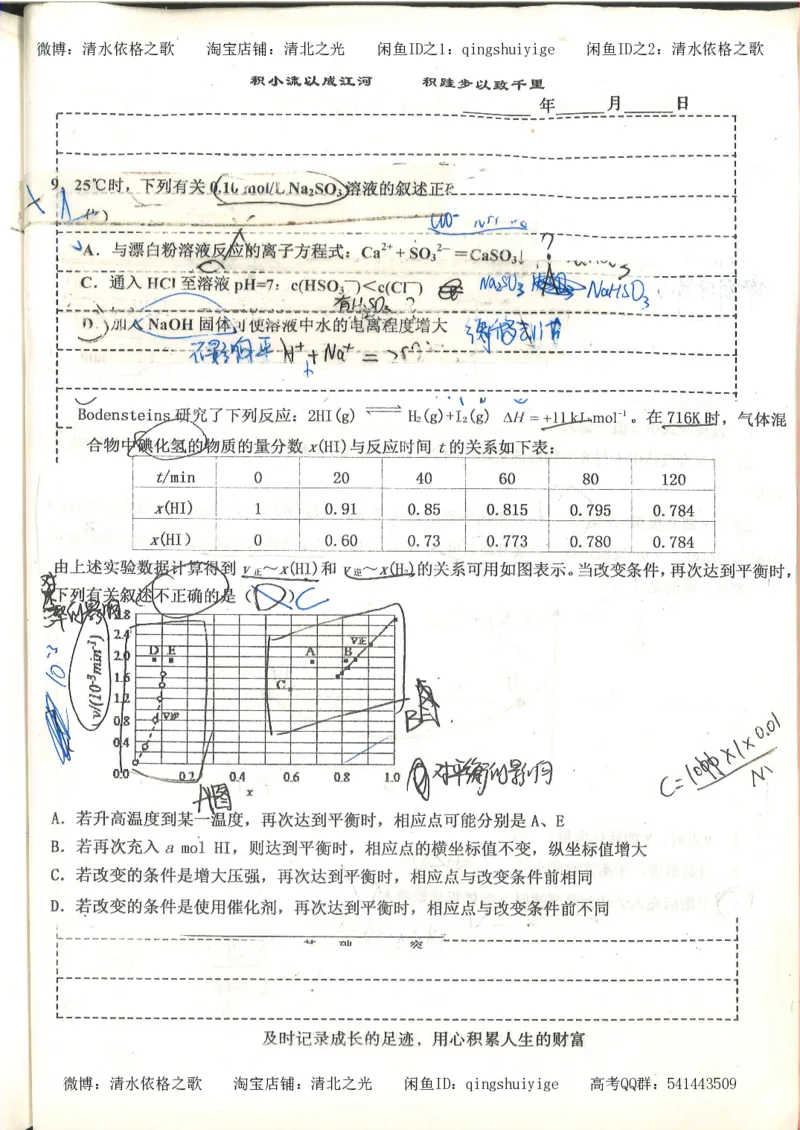 微博：清水依格之歌 淘宝店铺：清北之光 闲鱼ID之1：qingshuiyige 闲鱼ID之2：清水依格之歌
积小流以成江河 积跬步以致千里
年 月 日
9 25℃时，下列有关0.10 mol/L Na₂SO₃溶液的叙述正
A．与漂白粉溶液反应的离子方程式：Ca²⁺+SO₃²⁻=CaSO₃↓
C．通入HCl至溶液pH=7：c(HSO₃⁻)<c(Cl⁻) Na₂SO₃ NaHSO₃
有H₂SO₃？
D．加入NaOH固体可使溶液中水的电离程度增大
不影响平 H⁺+Na⁺=
Bodensteins研究了下列反应：2HI(g) ⇌ H₂(g)+I₂(g) ΔH=+11kJ.mol⁻¹。在716K时，气体混
合物中碘化氢的物质的量分数x(HI)与反应时间t的关系如下表：
t/min 0 20 40 60 80 120
x(HI) 1 0.91 0.85 0.815 0.795 0.784
x(HI) 0 0.60 0.73 0.773 0.780 0.784
由上述实验数据计算得到v正～x(HI)和v逆～x(H₂)的关系可用如图表示。当改变条件，再次达到平衡时，
下列有关叙述不正确的是（D） C
v/(10⁻³min⁻¹)
2.8
2.4
2.0
1.6
1.2
0.8
0.4
0.0
D E
v逆
A B
v正
C
0.2 0.4 0.6 0.8 1.0
x
10⁻³
对平衡的影响
A．若升高温度到某一温度，再次达到平衡时，相应点可能分别是A、E
B．若再次充入a mol HI，则达到平衡时，相应点的横坐标值不变，纵坐标值增大
C．若改变的条件是增大压强，再次达到平衡时，相应点与改变条件前相同
D．若改变的条件是使用催化剂，再次达到平衡时，相应点与改变条件前不同
及时记录成长的足迹，用心积累人生的财富
微博：清水依格之歌 淘宝店铺：清北之光 闲鱼ID：qingshuiyige 高考QQ群：541443509